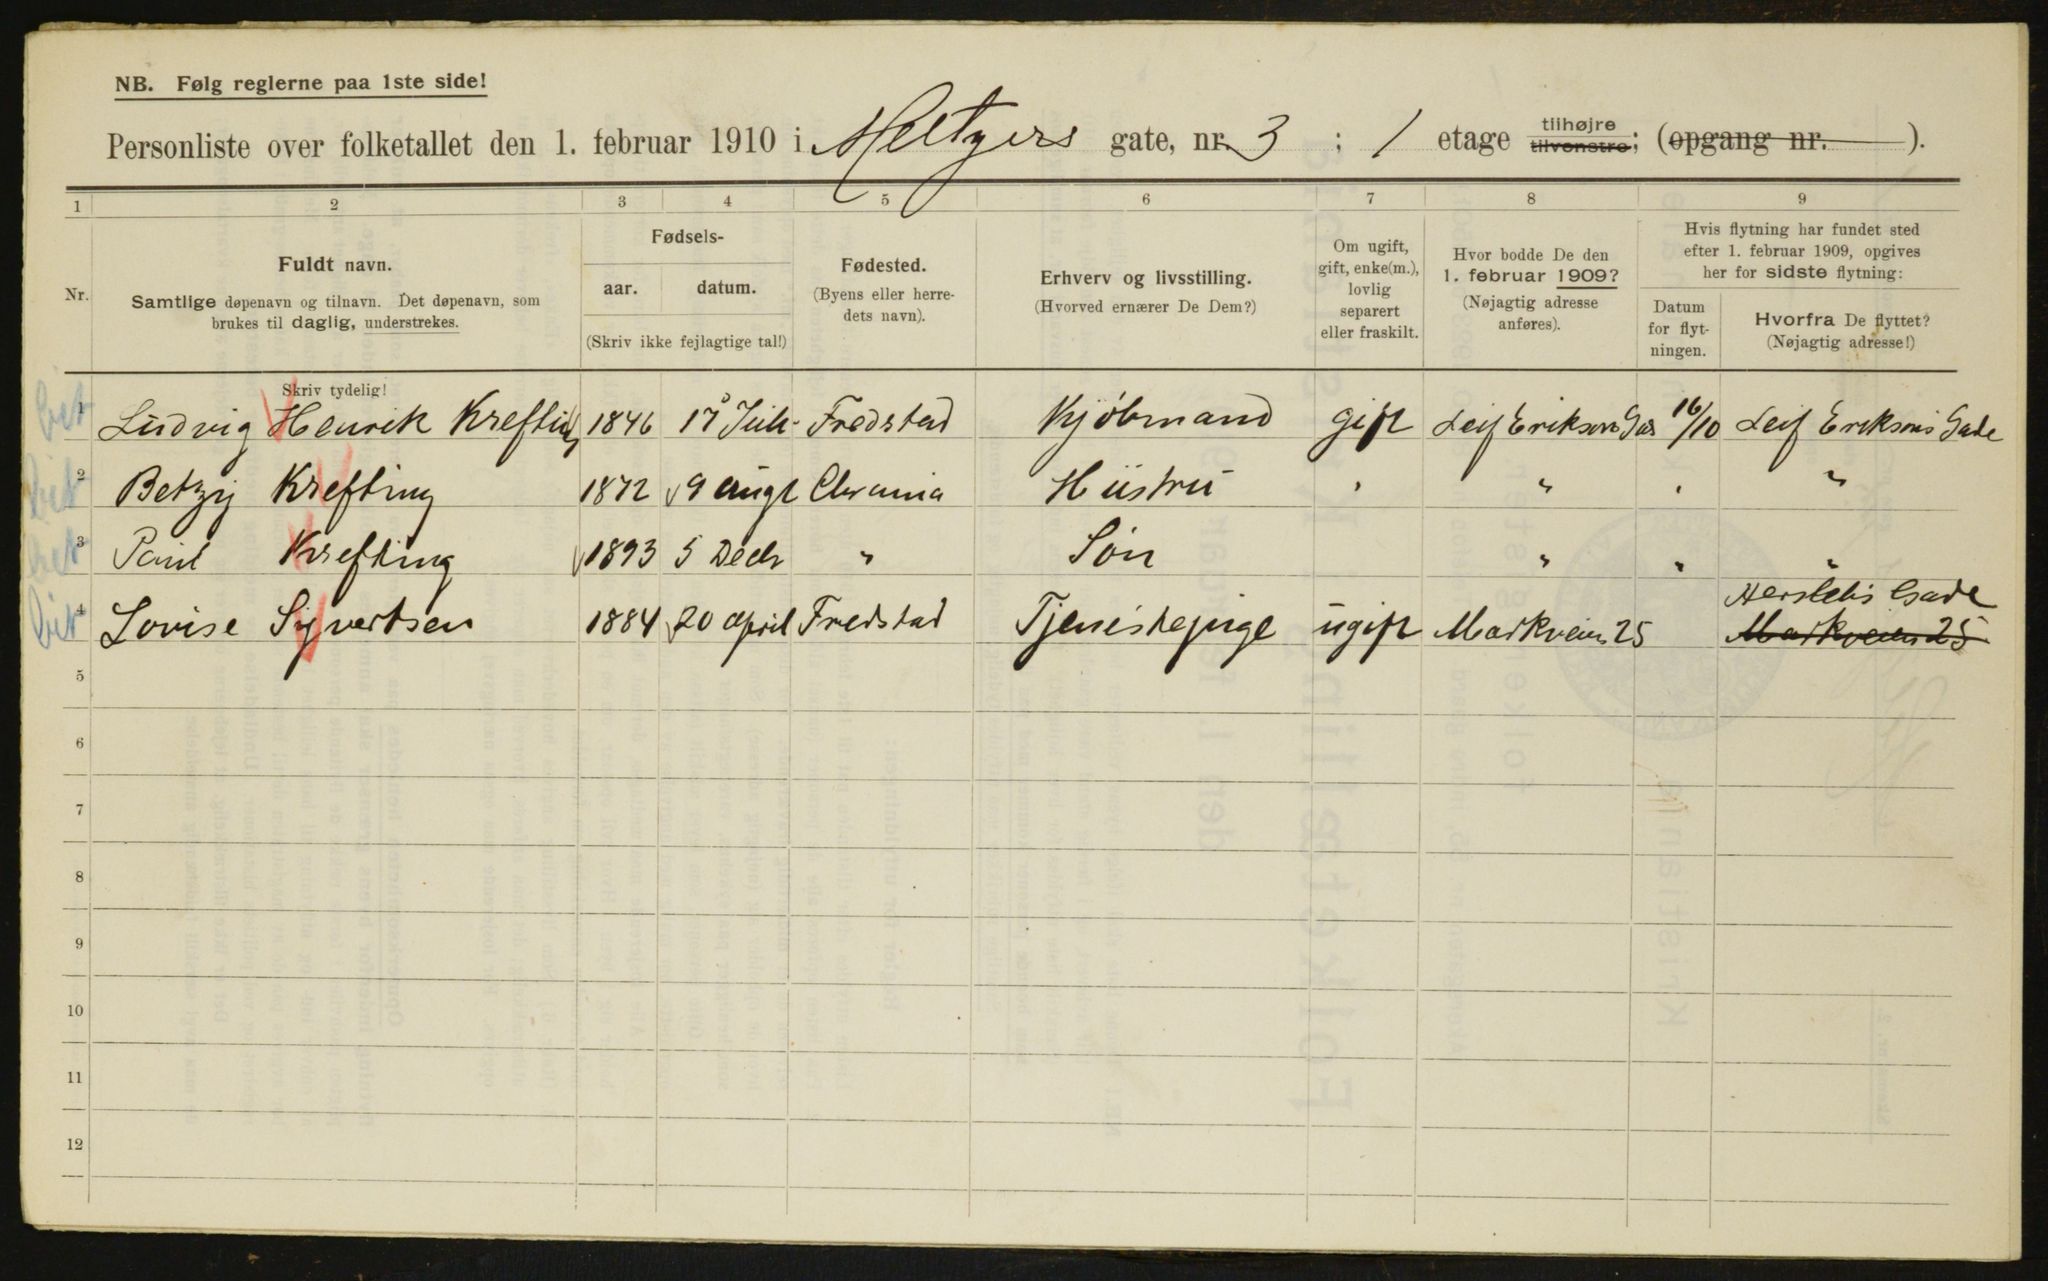 NB. Følg reglerne paa 1ste side!
Personliste over folketallet den 1. februar 1910 i Meltzers gate, nr. 3 ; 1 etage tilhøjre tilvenstre; (opgang nr. ).
1 2 3 4 5 6 7 8 9
Nr.
Fuldt navn.
Samtlige døpenavn og tilnavn. Det døpenavn, som
brukes til daglig, understrekes.
Skriv tydelig!
Fødsels-
aar. datum.
(Skriv ikke fejlagtige tal!)
Fødested.
(Byens eller herre-
dets navn).
Erhverv og livsstilling.
(Hvorved ernærer De Dem?)
Om ugift,
gift, enke(m.),
lovlig
separert
eller fraskilt.
Hvor bodde De den
1. februar 1909?
(Nøjagtig adresse
anføres).
Hvis flytning har fundet sted
efter 1. februar 1909, opgives
her for sidste flytning:
Datum
for flyt-
ningen.
Hvorfra De flyttet?
(Nøjagtig adresse!)
1 Ludvig Henrik Krefting 1846 17 Juli Fredstad Kjöbmand gift Leif Eriksons Gad 16/10 Leif Eriksons Gade
2 Betzy Krefting 1872 9 Augt Chrania Hüstrü " " " "
3 Paul Krefting 1893 5 Decb " Sön " " "
4 Lovise Syvertsen 1884 20 April Fredstad Tjenestepige ügift Markveien 25 Herslebs Gade
Markveien 25
5
6
7
8
9
10
11
12